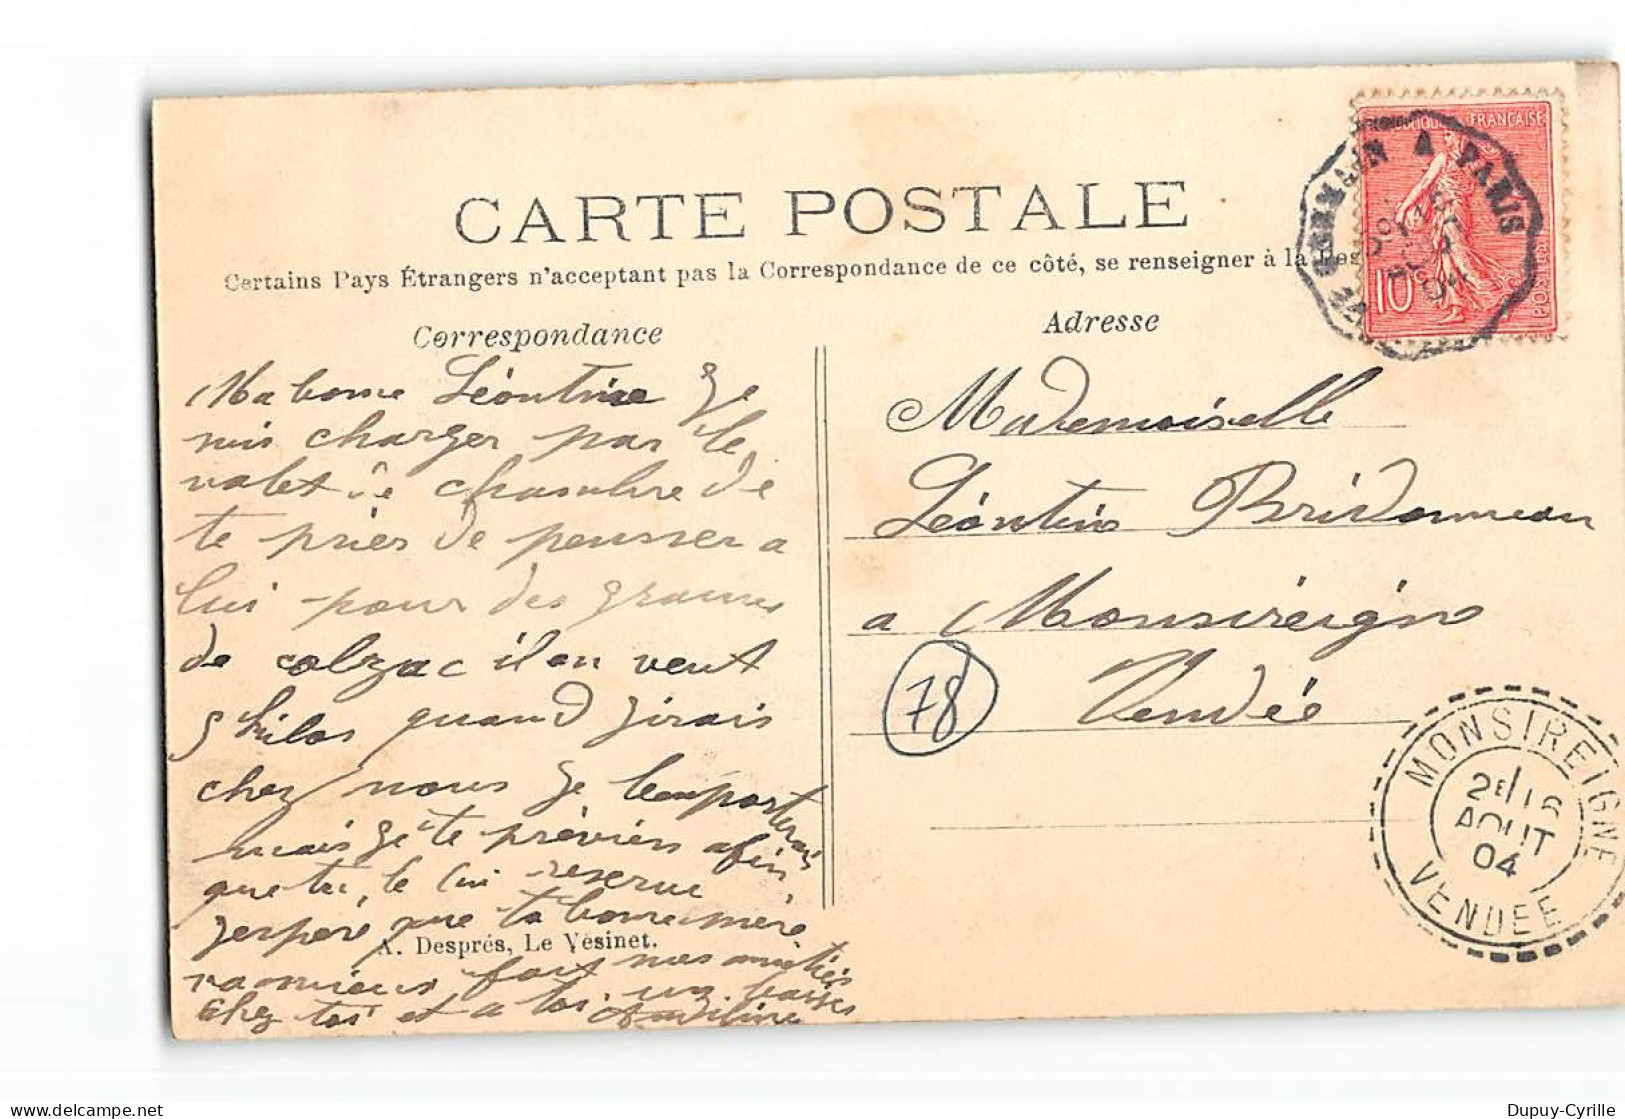 CARTE POSTALE
Certains Pays Étrangers n'acceptent pas la Correspondance de ce côté, se renseigner à la Pos
Correspondance
Ma bonne Léontine je
suis charger par le
valet de chambre de
te prier de pensser a
lui pour des graines
de colzac il en veut
5 kilos quand jirais
chez nous je lemporterais
mais je te préviens afin
que tu le lui reserve
jesperé que ta bonne mère
va mieux fait mes amitiés
chez toi et a toi un baiser
A. Després, Le Vésinet.
Adresse
Mademoiselle
Léontine Bridonneau
a Monsireigne
Vendée
78
RÉPUBLIQUE FRANÇAISE
10
POSTES
GERMAIN A PARIS
04
MONSIREIGNE
2E 16
AOUT
04
VENDEE
Dupuy-Cyrille